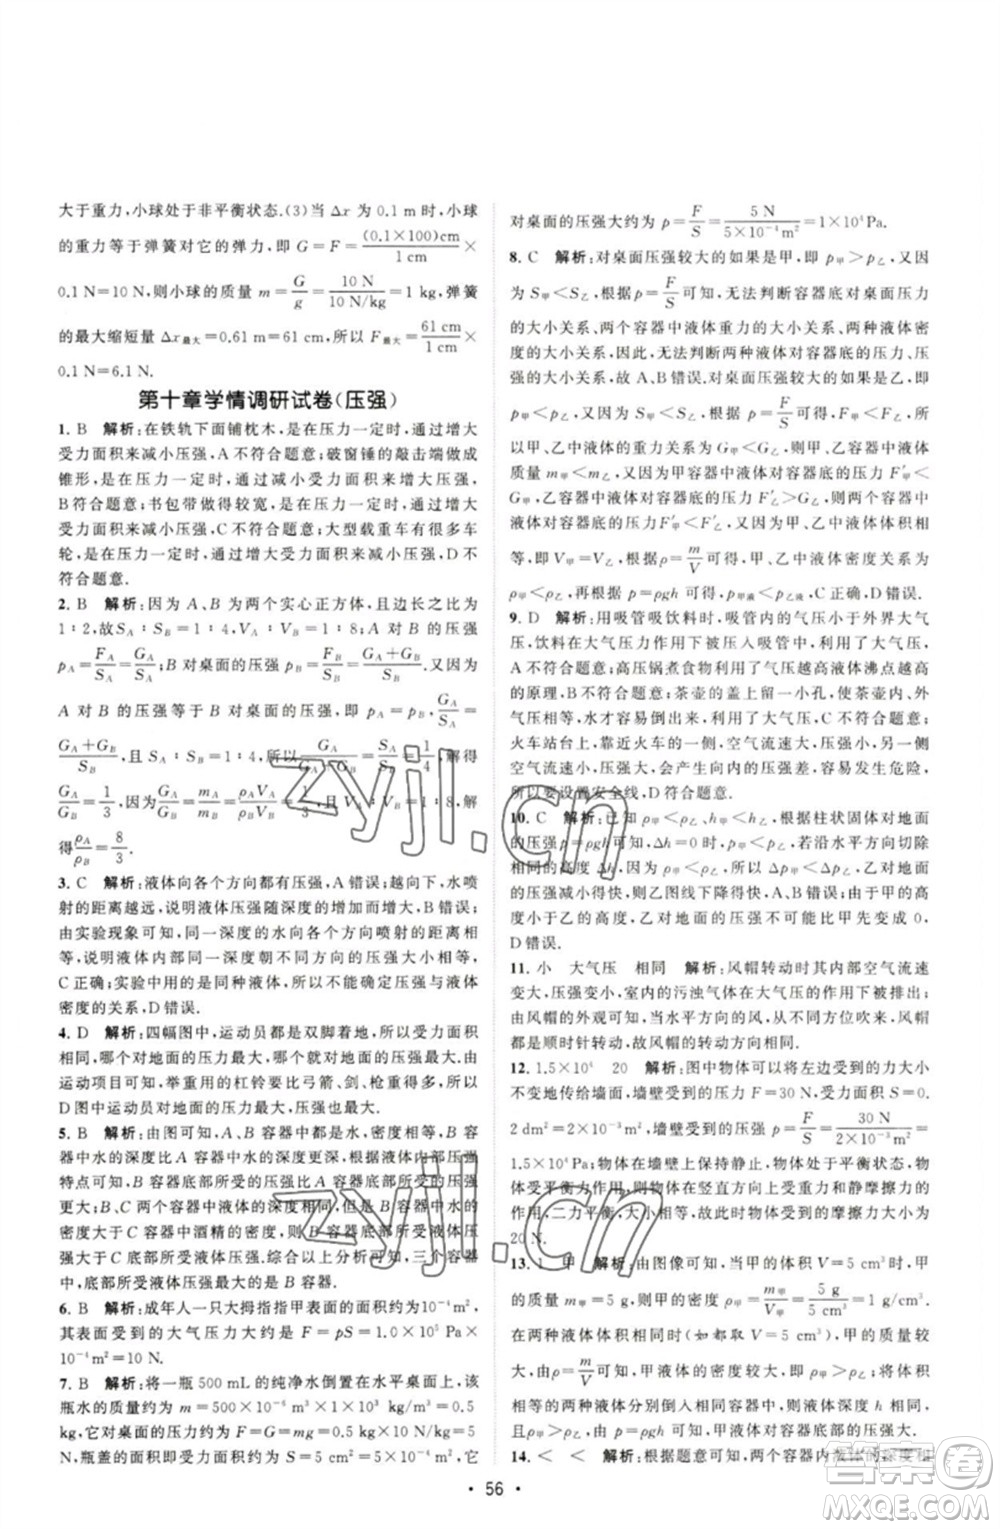 大于重力,小球处于非平衡状态.(3)当 Δx 为 0.1 m 时,小球
的重力等于弹簧对它的弹力,即 G = F = (0.1×100)cm/1 cm ×
0.1 N=10 N,则小球的质量 m = G/g = 10 N/10 N/kg = 1 kg,弹簧
的最大缩短量 Δx最大 = 0.61 m = 61 cm,所以 F最大 = 61 cm/1 cm ×
0.1 N=6.1 N.
第十章学情调研试卷(压强)
1. B 解析:在铁轨下面铺枕木,是在压力一定时,通过增大
受力面积来减小压强,A 不符合题意;破窗锤的敲击端做成
锥形,是在压力一定时,通过减小受力面积来增大压强,
B 符合题意;书包带做得较宽,是在压力一定时,通过增大
受力面积来减小压强,C 不符合题意;大型载重车有很多车
轮,是在压力一定时,通过增大受力面积来减小压强,D 不
符合题意.
2. B 解析:因为 A、B 为两个实心正方体,且边长之比是
1∶2,故 SA∶SB=1∶4,VA∶VB=1∶8;A 对 B 的压强
pA = FA/SA = GA/SA,B 对桌面的压强 pB = FB/SB,又因为
A 对 B 的压强等于 B 对桌面的压强,即 pA = pB, GA/SA =
GA+GB/SB,且 SA∶SB=1∶4,所以 GA/1 = GA+GB/4,解得
GA/GB = 1/3,因为 GA/GB = mA/mB = ρAVA/ρBVB = 1/3,且 VA∶VB=1∶8,解
得 ρA/ρB = 8/3.
3. C 解析:液体向各个方向都有压强,A 错误;越向下,水喷
射的越远,说明液体压强随深度的增加而增大,B 错误;
由实验现象可知,向四周各个方向喷射的距离几乎相同,
说明液体内部同一深度向各个方向压强的大小相等,
C 正确;实验用的是同种液体,不能说明液体压强与液体
密度的关系,D 错误.
4. D 解析:四幅图中,运动员都是双脚着地,所以受力面积
相同,哪个对地面的压力最大,哪个对地面的压强就最大,由于
运动项目可知,运动员举起的杠铃要比弓箭、剑重,所以
D 图中运动员对地面的压力最大,压强最大.
5. B 解析:由图可知,A、B 容器中都是水,尽管容器形状不
同,但 B 容器中水的深度比 A 容器中的深度深,根据液体压强
特点可知,B 容器底部所受液体压强比 A 容器底部所受液体压强
大,B、C 两个容器中液体的深度相同,但是 B 容器中水的密度
大于 C 容器中酒精的密度,所以 B 底部所受液体的
压强大于 C 底部所受液体压强.综合以上分析可知,三个容器
中,底部所受液体压强最大的是 B 容器.
6. B 解析:成年人一只大拇指指甲表面的面积约为10⁻⁴ m²,
其表面受到的大气压力大约是 F = pS = 1.0×10⁵ Pa×
10⁻⁴ m²=10 N.
7. B 解析:将一瓶 500 mL 的纯净水倒置在水平桌面上,该
瓶水的质量约为 m = 500×10⁻⁶ m³×1.0×10³ kg/m³=0.5
kg,它对桌面的压力约为 F=G=mg=0.5 kg×10 N/kg=
5 N,瓶盖的面积即受力面积约为 S=5 cm²=5×10⁻⁴ m²,它
对桌面的压强大约为 p = F/S = 5 N/5×10⁻⁴ m² = 1×10⁴ Pa.
8. C 解析:对桌面压强较大的是甲,即 p甲>p乙,因为
S甲<S乙,由 p = F/S 可知,无法判断容器底对桌面压力
的大小关系,两个容器中液体重力的大小关系、液体质量
的大小关系,也无法判断两种液体对容器底的压力的大小
关系,故 A、B 错误.如果对桌面压强较大的是乙,即
p甲<p乙,因为 S甲<S乙,由 p = F/S 可得,F甲<F乙,所
以甲、乙中液体的重力关系为 G甲<G乙,甲、乙中液体的
质量 m甲<m乙,因为甲容器中液体对容器底的压力 F′甲<
G甲,乙容器中液体对容器底的压力 F′乙>G乙,则两种液体
对容器底的压力 F′甲<F′乙,因为甲、乙容器中液体体积相
等,即 V甲=V乙,由 ρ = m/V 可得,甲、乙液体密度关系为
ρ甲<ρ乙,再根据 p = ρgh 可得,p甲液<p乙液,故 C 正确,D 错误.
9. D 解析:用吸管吸饮料时,吸管内的气压小于外界大气
压,饮料在大气压的作用下被压入吸管中,是利用了大气压,
A 不符合题意;高压锅煮食物利用了气压越高液体沸点越高
的原理,B 不符合题意;茶壶的盖上留一小孔,使壶内外
气压相等,水才容易倒出来,利用了大气压,C 不符合题意;
火车站台上,靠近火车的一侧,空气流速大,压强小,另一侧
空气流速小,压强大,会产生向轨道一侧的压强差,很危险,
所以要设置安全线,D 符合题意.
10. C 解析:已知 ρ甲>ρ乙、h甲<h乙,根据柱状固体对地面的
压强 p = ρgh 可知,Δh=0 时,p甲=p乙,若沿水平方向切去
相同高度,则甲减小的压强大,A、B 错误;由于甲的
压强减小得快,则乙图线下降得慢,C 正确;由于甲的高
度小于乙的高度,乙对地面的压强不可能比甲先变成 0,
D 错误.
11. 小 大气压 相同 解析:风帽转动时其内部空气流速
变大,压强变小,室内的污浊气体在大气压的作用下排出;
由风帽的外观可知,当风向改变时,风帽的转动方向都
是顺时针转动,故风帽的转动方向相同.
12. 1.5×10⁴ 20 解析:图中物体在左边受到的力大小
不变地传给墙面,墙壁受到的压力 F=30 N,受力面积 S=0.
2 dm²=2×10⁻³ m²,墙壁受到的压强 p = F/S = 30 N/2×10⁻³ m² =
1.5×10⁴ Pa;物体在墙壁上保持静止,物体处于平衡状态,
受平衡力作用,重力和墙壁在竖直方向上对物体的摩擦力
是一对平衡力,二力平衡,大小相等,故物体受到的摩擦力大小为
20 N.
13. 1 甲 解析:由图像可知,当两种液体的体积都为5 cm³时,
甲的质量 m甲 = 5 g,则甲的密度 ρ甲 = m甲/V甲 = 5 g/5 cm³ = 1 g/cm³;
当两种液体体积相同时(如都取 5 cm³),甲的质量较
大,由 ρ = m/V 可知,甲液体的密度较大,即 ρ甲>ρ乙;质量相等的
两种液体分别倒入相同容器中,对容器底部的压强
14. < < 解析:根据题意可知,两个容器内液体的深度相
zyjl.cn
zyjl.cn
答案圈
MXQE.COM
· 56 ·